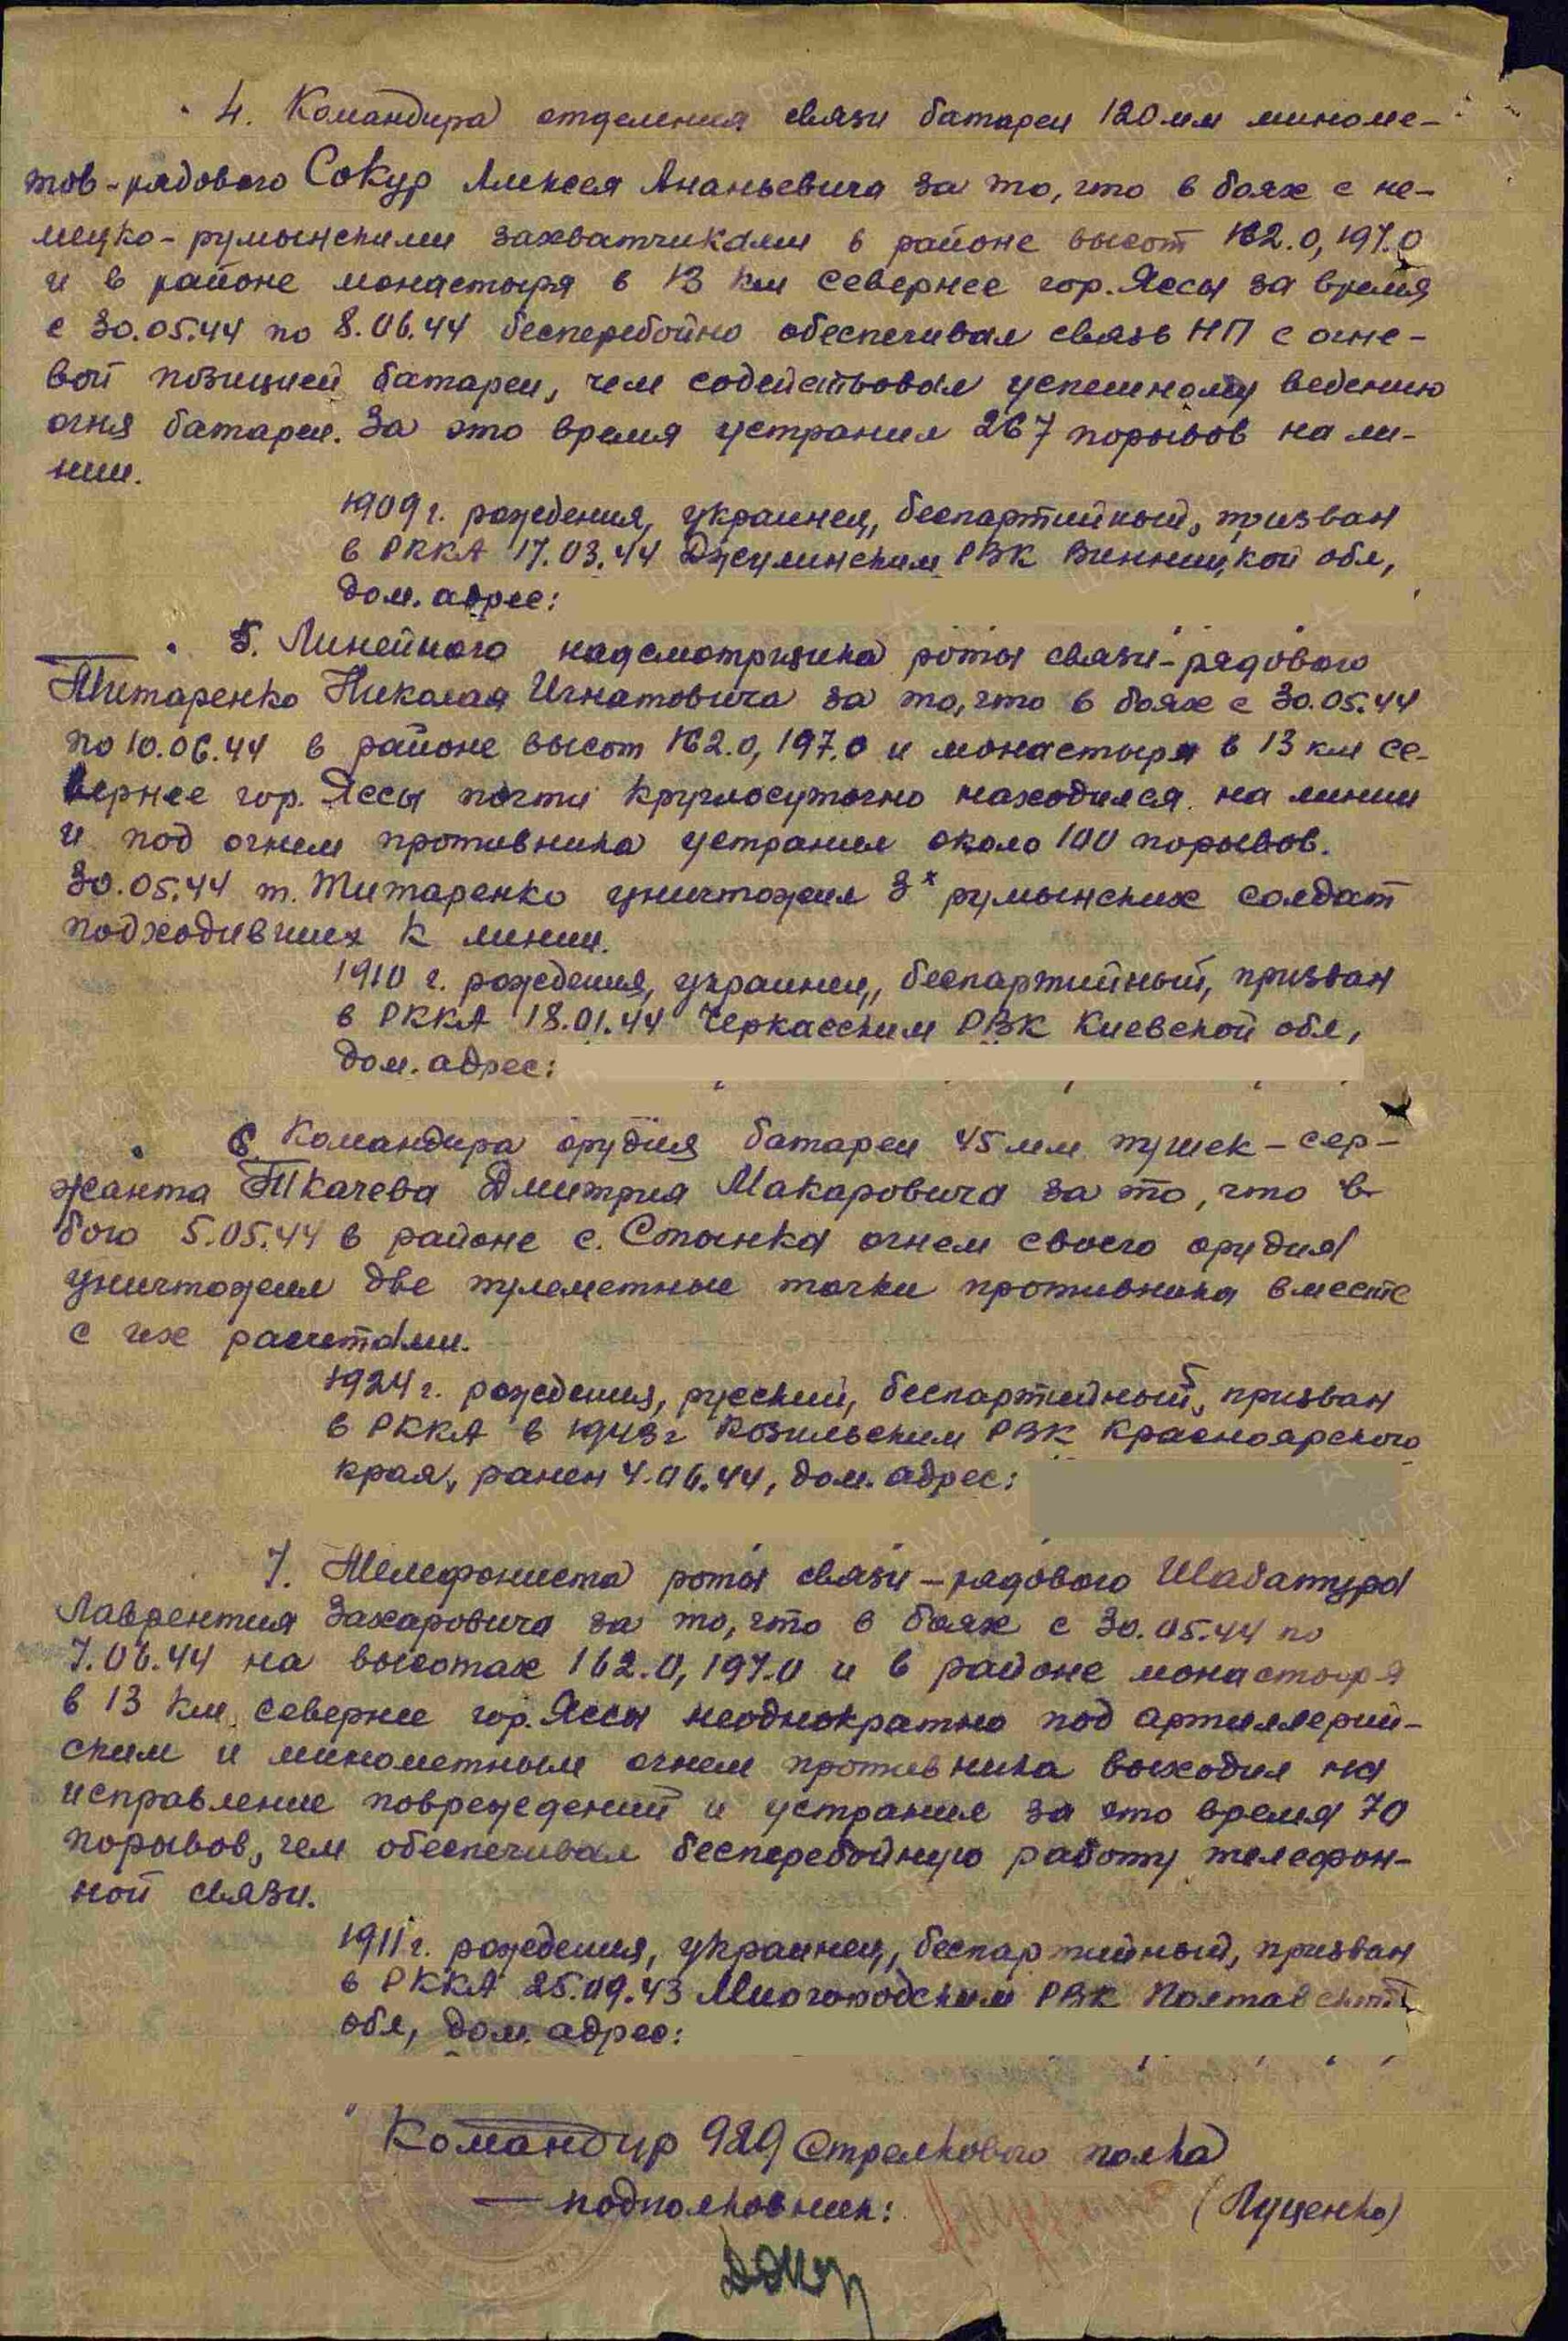 4. Командира отделения связи батареи 120 мм миноме-
тов - рядового Сокур Алексея Ананьевича за то, что в боях с не-
мецко - румынскими захватчиками в районе высот 162.0, 197.0
и в районе монастыря в 13 км севернее гор. Яссы за время
с 30.05.44 по 8.06.44 бесперебойно обеспечивал связь НП с огне-
вой позицией батареи, чем содействовал успешному ведению
огня батареи. За это время устранил 267 порывов на ли-
нии.
1909 г. рождения, украинец, беспартийный, призван
в РККА 17.03.44 Джулинским РВК Винницкой обл,
дом. адрес:
5. Линейного надсмотрщика роты связи - рядового
Титаренко Николая Игнатовича за то, что в боях с 30.05.44
по 10.06.44 в районе высот 162.0, 197.0 и монастыря в 13 км се-
вернее гор. Яссы почти круглосуточно находился на линии
и под огнем противника устранил около 100 порывов.
30.05.44 т. Титаренко уничтожил 3х румынских солдат
подходивших к линии.
1910 г. рождения, украинец, беспартийный, призван
в РККА 18.01.44 Черкасским РВК Киевской обл,
дом. адрес:
6. Командира орудия батареи 45 мм пушек - сер-
жанта Ткачева Дмитрия Макаровича за то, что в
бою 5.05.44 в районе с. Стынка огнем своего орудия
уничтожил две пулеметные точки противника вместе
с их расчетами.
1924 г. рождения, русский, беспартийный, призван
в РККА в 1943 г Козульским РВК Красноярского
края, ранен 4.06.44, дом. адрес:
7. Телефониста роты связи - рядового Шабатура
Лаврентия Захаровича за то, что в боях с 30.05.44 по
7.06.44 на высотах 162.0, 197.0 и в районе монастыря
в 13 км севернее гор. Яссы неоднократно под артиллерий-
ским и минометным огнем противника выходил на
исправление повреждений и устранил за это время 70
порывов, чем обеспечивал бесперебойную работу телефон-
ной связи.
1911 г. рождения, украинец, беспартийный, призван
в РККА 25.09.43 Миргородским РВК Полтавской
обл, дом. адрес:
Командир 929 Стрелкового полка
подполковник: (Луценко)